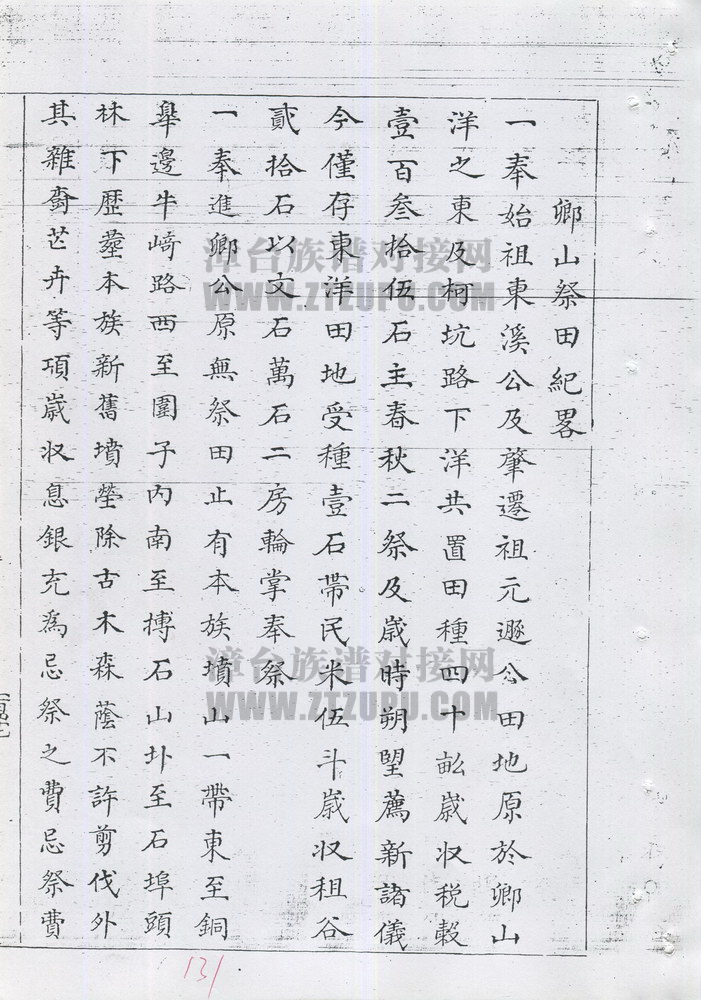 卿山祭田紀畧
一奉始祖東溪公及肇遷祖元遯公田地原於卿山
洋之東及柯坑路下洋共置田種四十畝歲收税穀
壹百叁拾伍石主春秋二祭及歲時朔望薦新諸儀
今僅存東洋田地受種壹石帶民米伍斗歲收租谷
貳拾石以文石萬石二房輪掌奉祭
一奉進卿公原無祭田止有本族墳山一帶東至銅
皐邊牛﨑路西至圍子內南至摶石山圤至石埠頭
林下歷塟本族新舊墳塋除古木森蔭不許剪伐外
其雜樹芒卉等項歲収息銀充為忌祭之費忌祭費
漳台族谱对接网
WWW.ZTZUPU.COM
漳台族谱对接网
WWW.ZTZUPU.COM
131